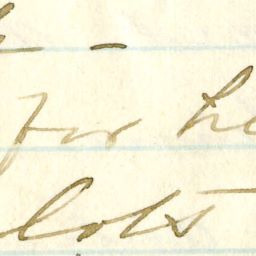 for he
lots